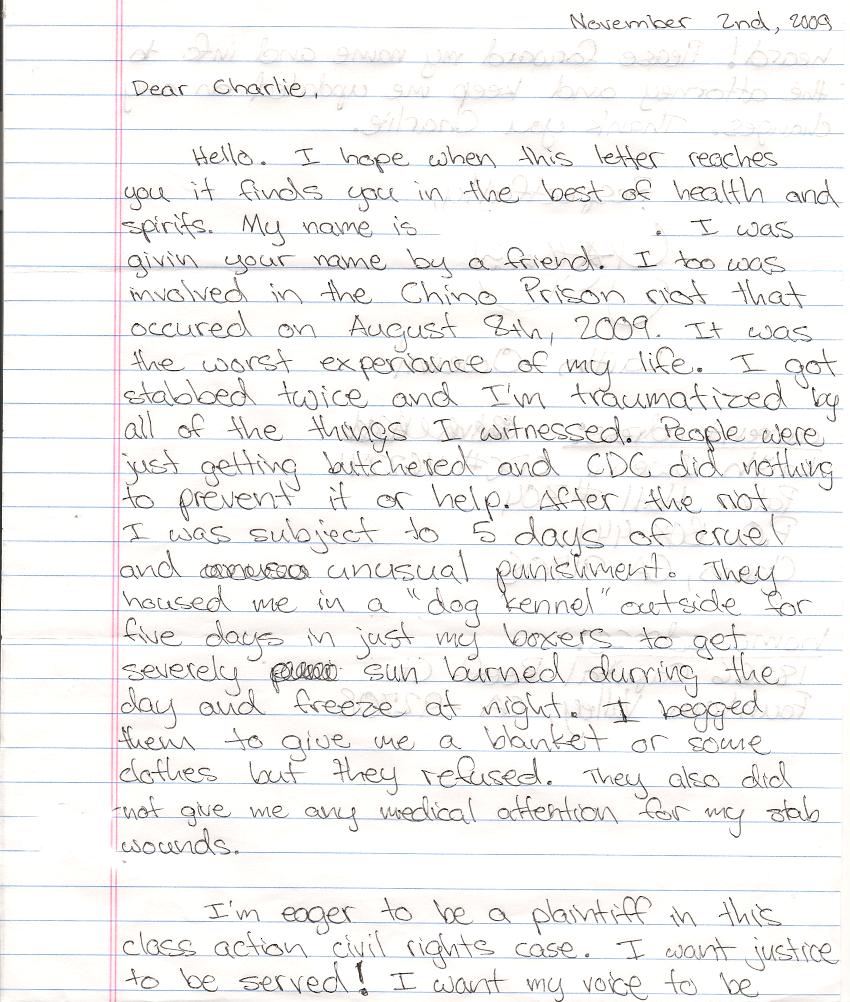 November 2nd, 2009
Dear Charlie,
Hello. I hope when this letter reaches
you it finds you in the best of health and
spirits. My name is . I was
givin your name by a friend. I too was
involved in the Chino Prison riot that
occured on August 8th, 2009. It was
the worst experiance of my life. I got
stabbed twice and I'm traumatized by
all of the things I witnessed. People were
just getting butchered and CDC did nothing
to prevent it or help. After the riot
I was subject to 5 days of cruel
and unusual punishment. They
housed me in a "dog kennel" outside for
five days in just my boxers to get
severely sun burned durring the
day and freeze at night. I begged
them to give me a blanket or some
clothes but they refused. They also did
not give me any medical attention for my stab
wounds.
I'm eager to be a plaintiff in this
class action civil rights case. I want justice
to be served! I want my voice to be